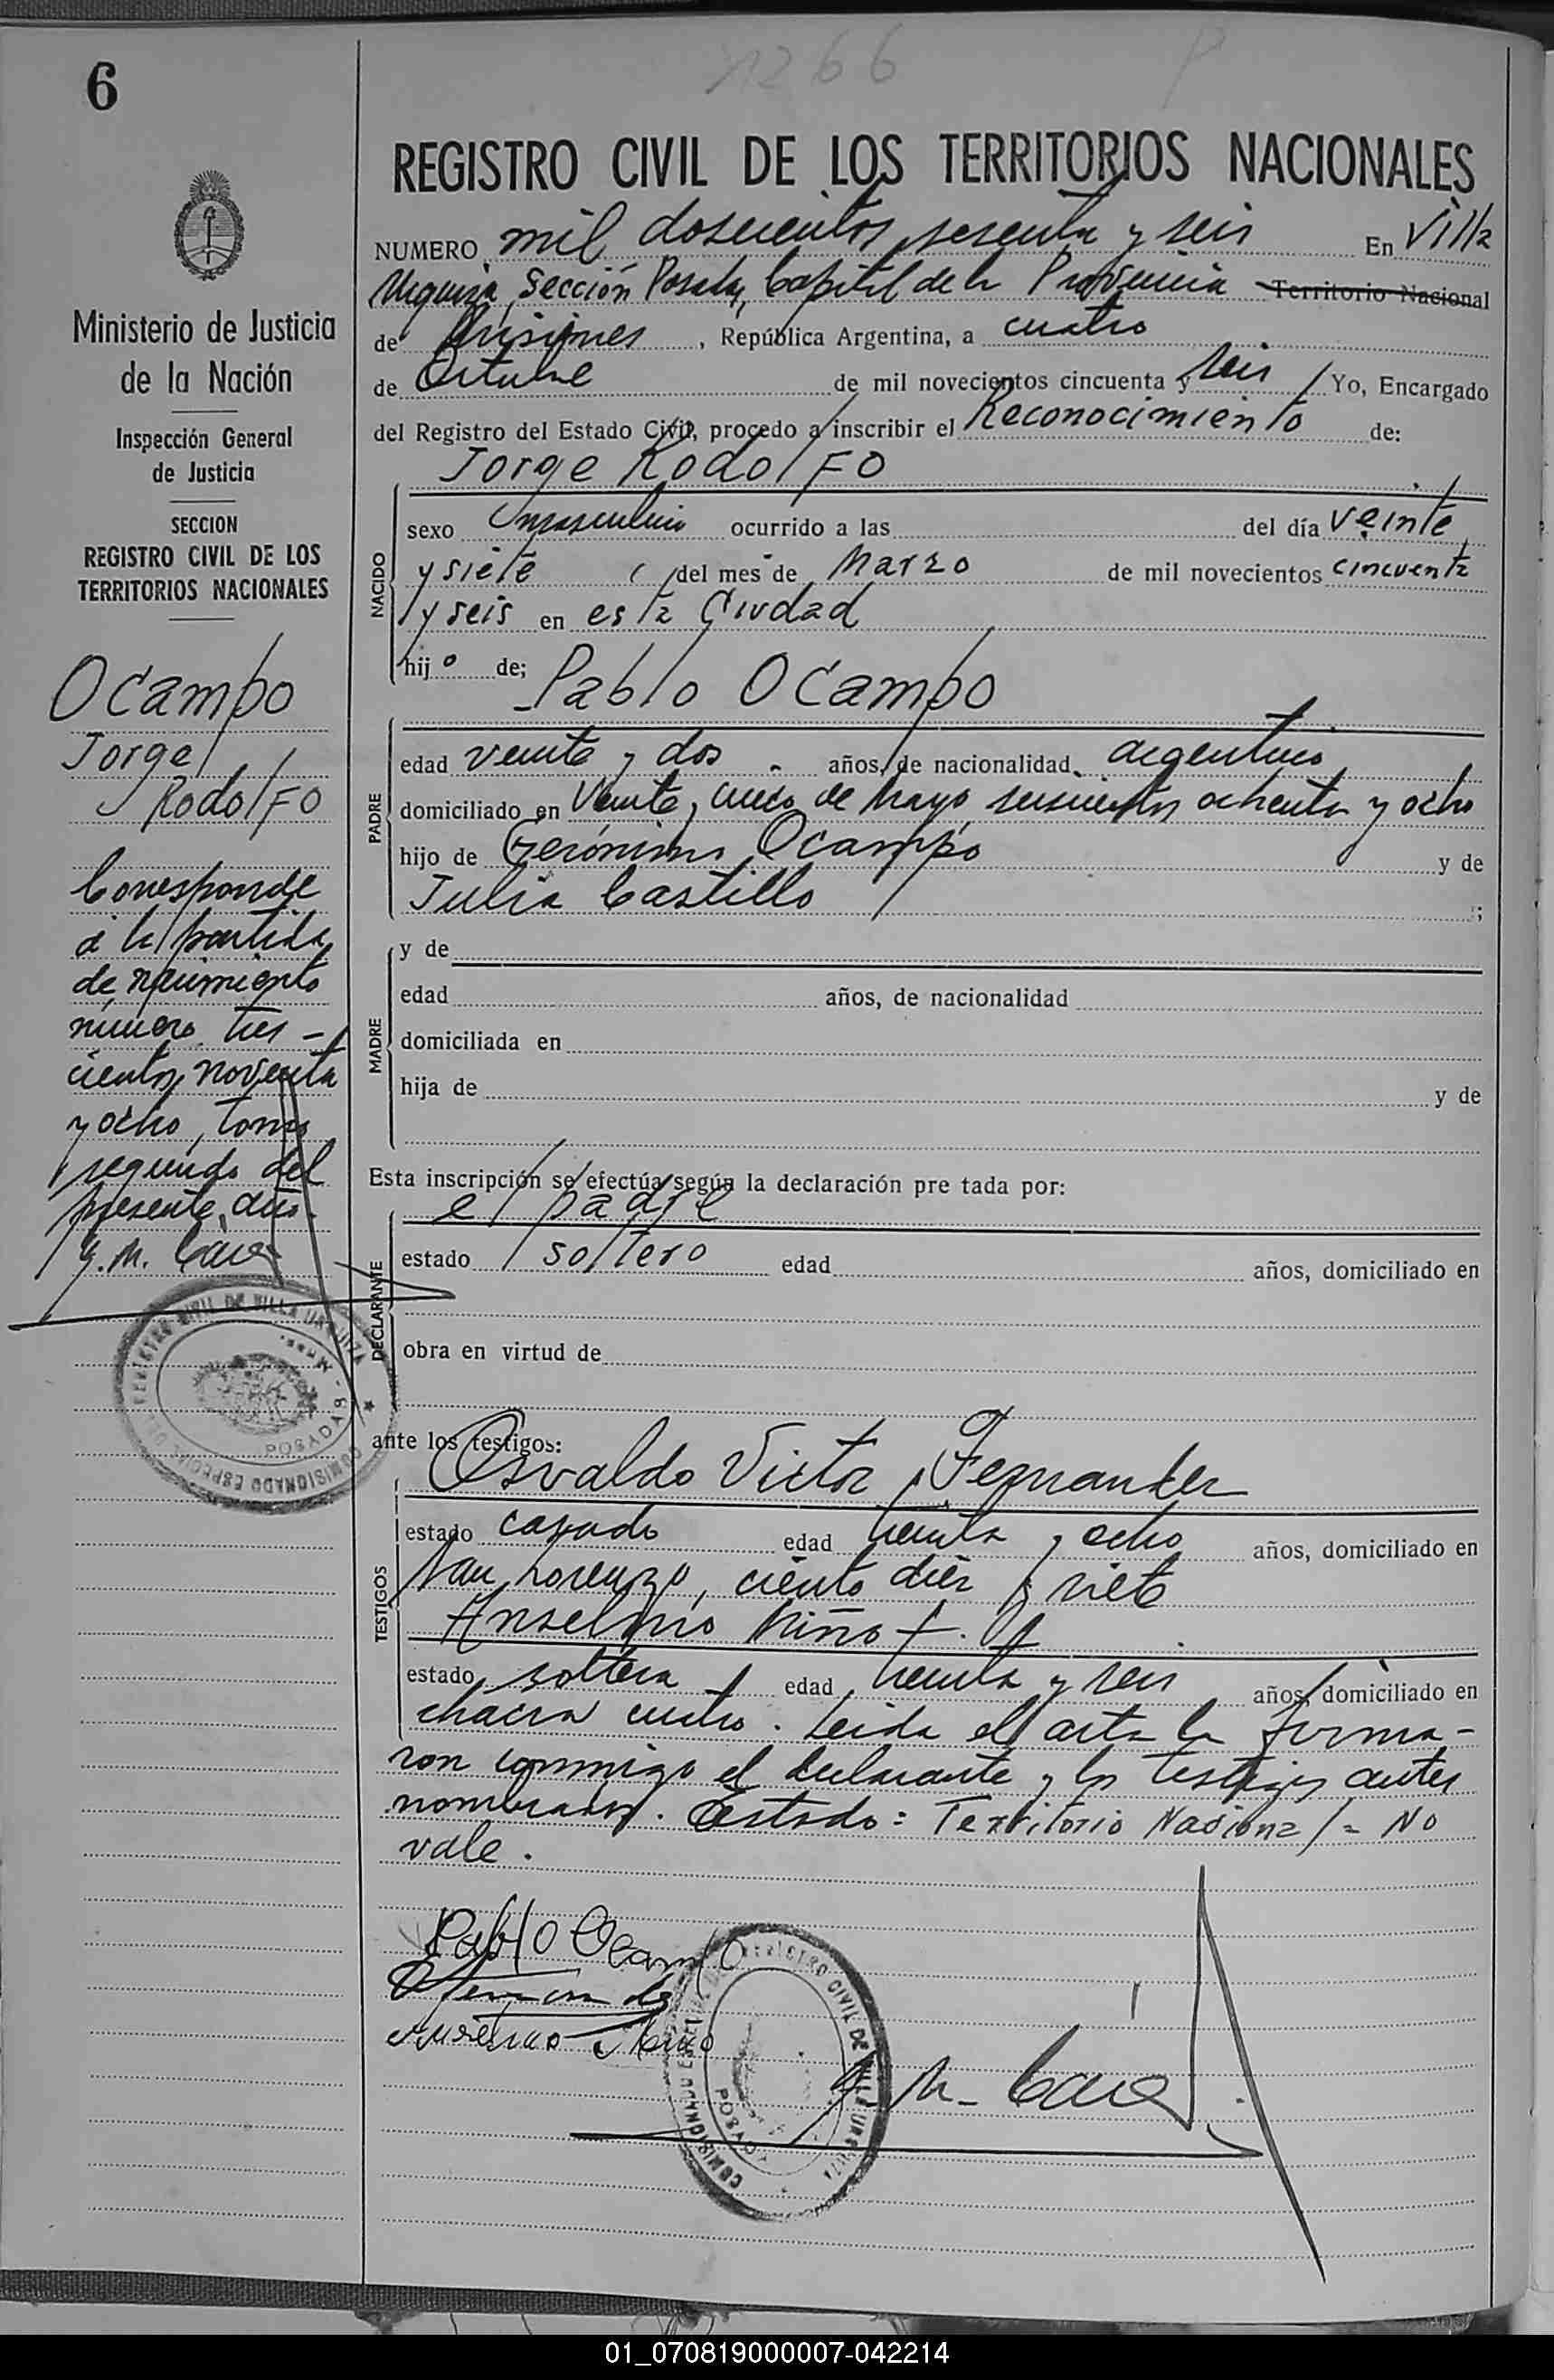 6
1266
P
Ministerio de Justicia
de la Nación
Inspección General
de Justicia
SECCION
REGISTRO CIVIL DE LOS
TERRITORIOS NACIONALES
Ocampo
Jorge
Rodolfo
Corresponde
a la partida
de nacimiento
número tres-
cientos noventa
y ocho, tomo
segundo del
presente año.
REGISTRO CIVIL DE LOS TERRITORIOS NACIONALES
NUMERO mil doscientos sesenta y seis En Villa
Urquiza, Sección Posadas, Capital de la Provincia Territorio Nacional
de Misiones, República Argentina, a cuatro
de Octubre de mil novecientos cincuenta y seis Yo, Encargado
del Registro del Estado Civil, procedo a inscribir el Reconocimiento de:
Jorge Rodolfo
NACIDO
sexo masculino ocurrido a las del día veinte
y siete del mes de Marzo de mil novecientos cincuenta
y seis en esta Ciudad
hijo de; Pablo Ocampo
PADRE
edad veinte y dos años, de nacionalidad argentino
domiciliado en Veinte y cinco de Mayo seiscientos ochenta y ocho
hijo de Gerónimo Ocampo y de
Julia Castillo ;
MADRE
y de
edad años, de nacionalidad
domiciliada en
hija de y de
Esta inscripción se efectúa según la declaración pre tada por:
el padre
DECLARANTE
estado soltero edad años, domiciliado en
obra en virtud de
ante los testigos:
Osvaldo Victor Fernandez
TESTIGOS
estado casado edad treinta y ocho años, domiciliado en
San Lorenzo, ciento diez y siete
Anselmo Miño
estado soltero edad treinta y seis años, domiciliado en
chacra cuatro. Leida el acta la firma-
ron conmigo el declarante y los testigos antes
nombrados. Testado: Territorio Nacional = No
vale.
Pablo Ocampo
COMISIONADO ESPECIAL DEL REGISTRO CIVIL DE VILLA URQUIZA
POSADAS
01_070819000007-042214